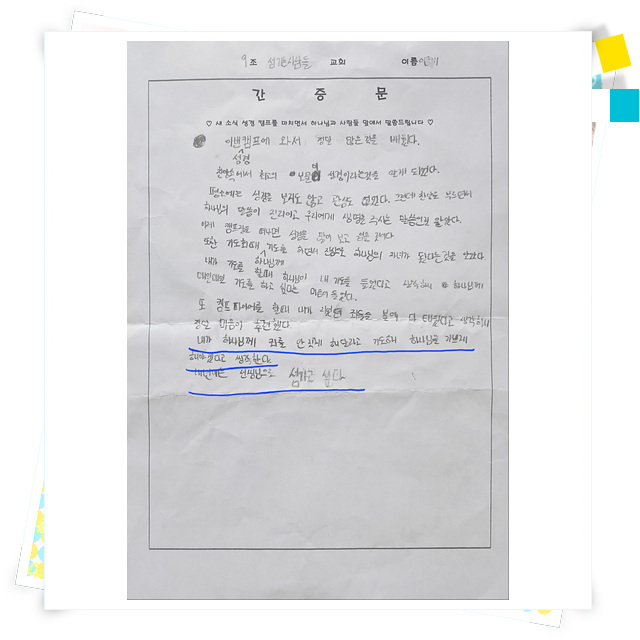 9 조 섬김사람들 교회 이름
간 증 문
♡ 새 소식 성경 캠프를 마치면서 하나님과 사람들 앞에서 말씀드립니다 ♡
이번캠프에 와서 정말 많은것을 배웠다.
성경
찬양속에서 최고의 보물이 성경이라는것을 알게 되었다.
평소에는 성경을 보지도 않고 관심도 없었다. 그런데 찬양을 부르면서
하나님의 말씀이 진리이고 우리에게 생명을 주시는 말씀인걸 알았다.
이제 캠프장을 떠나면 성경을 많이 보고 싶을 것이다
또한 기도회때 기도를 하면서 진심으로 하나님의 자녀가 됬다는것을 알았다.
하나님께
내가 기도를 할때 하나님이 내 기도를 들었다고 생각하니 하나님께
대만대로 기도를 하고 싶다는 마음이 들었다.
또 캠프 파이어를 할때 내가 지었던 죄들을 붙여 다 태웠다고 생각하니
정말 마음이 후련했다
내가 하나님께 죄를 안 짓게 해달라고 기도해 하나님을 기쁘게
해야겠다고 생각한다.
다음에는 선생님으로 섬기고 싶다.